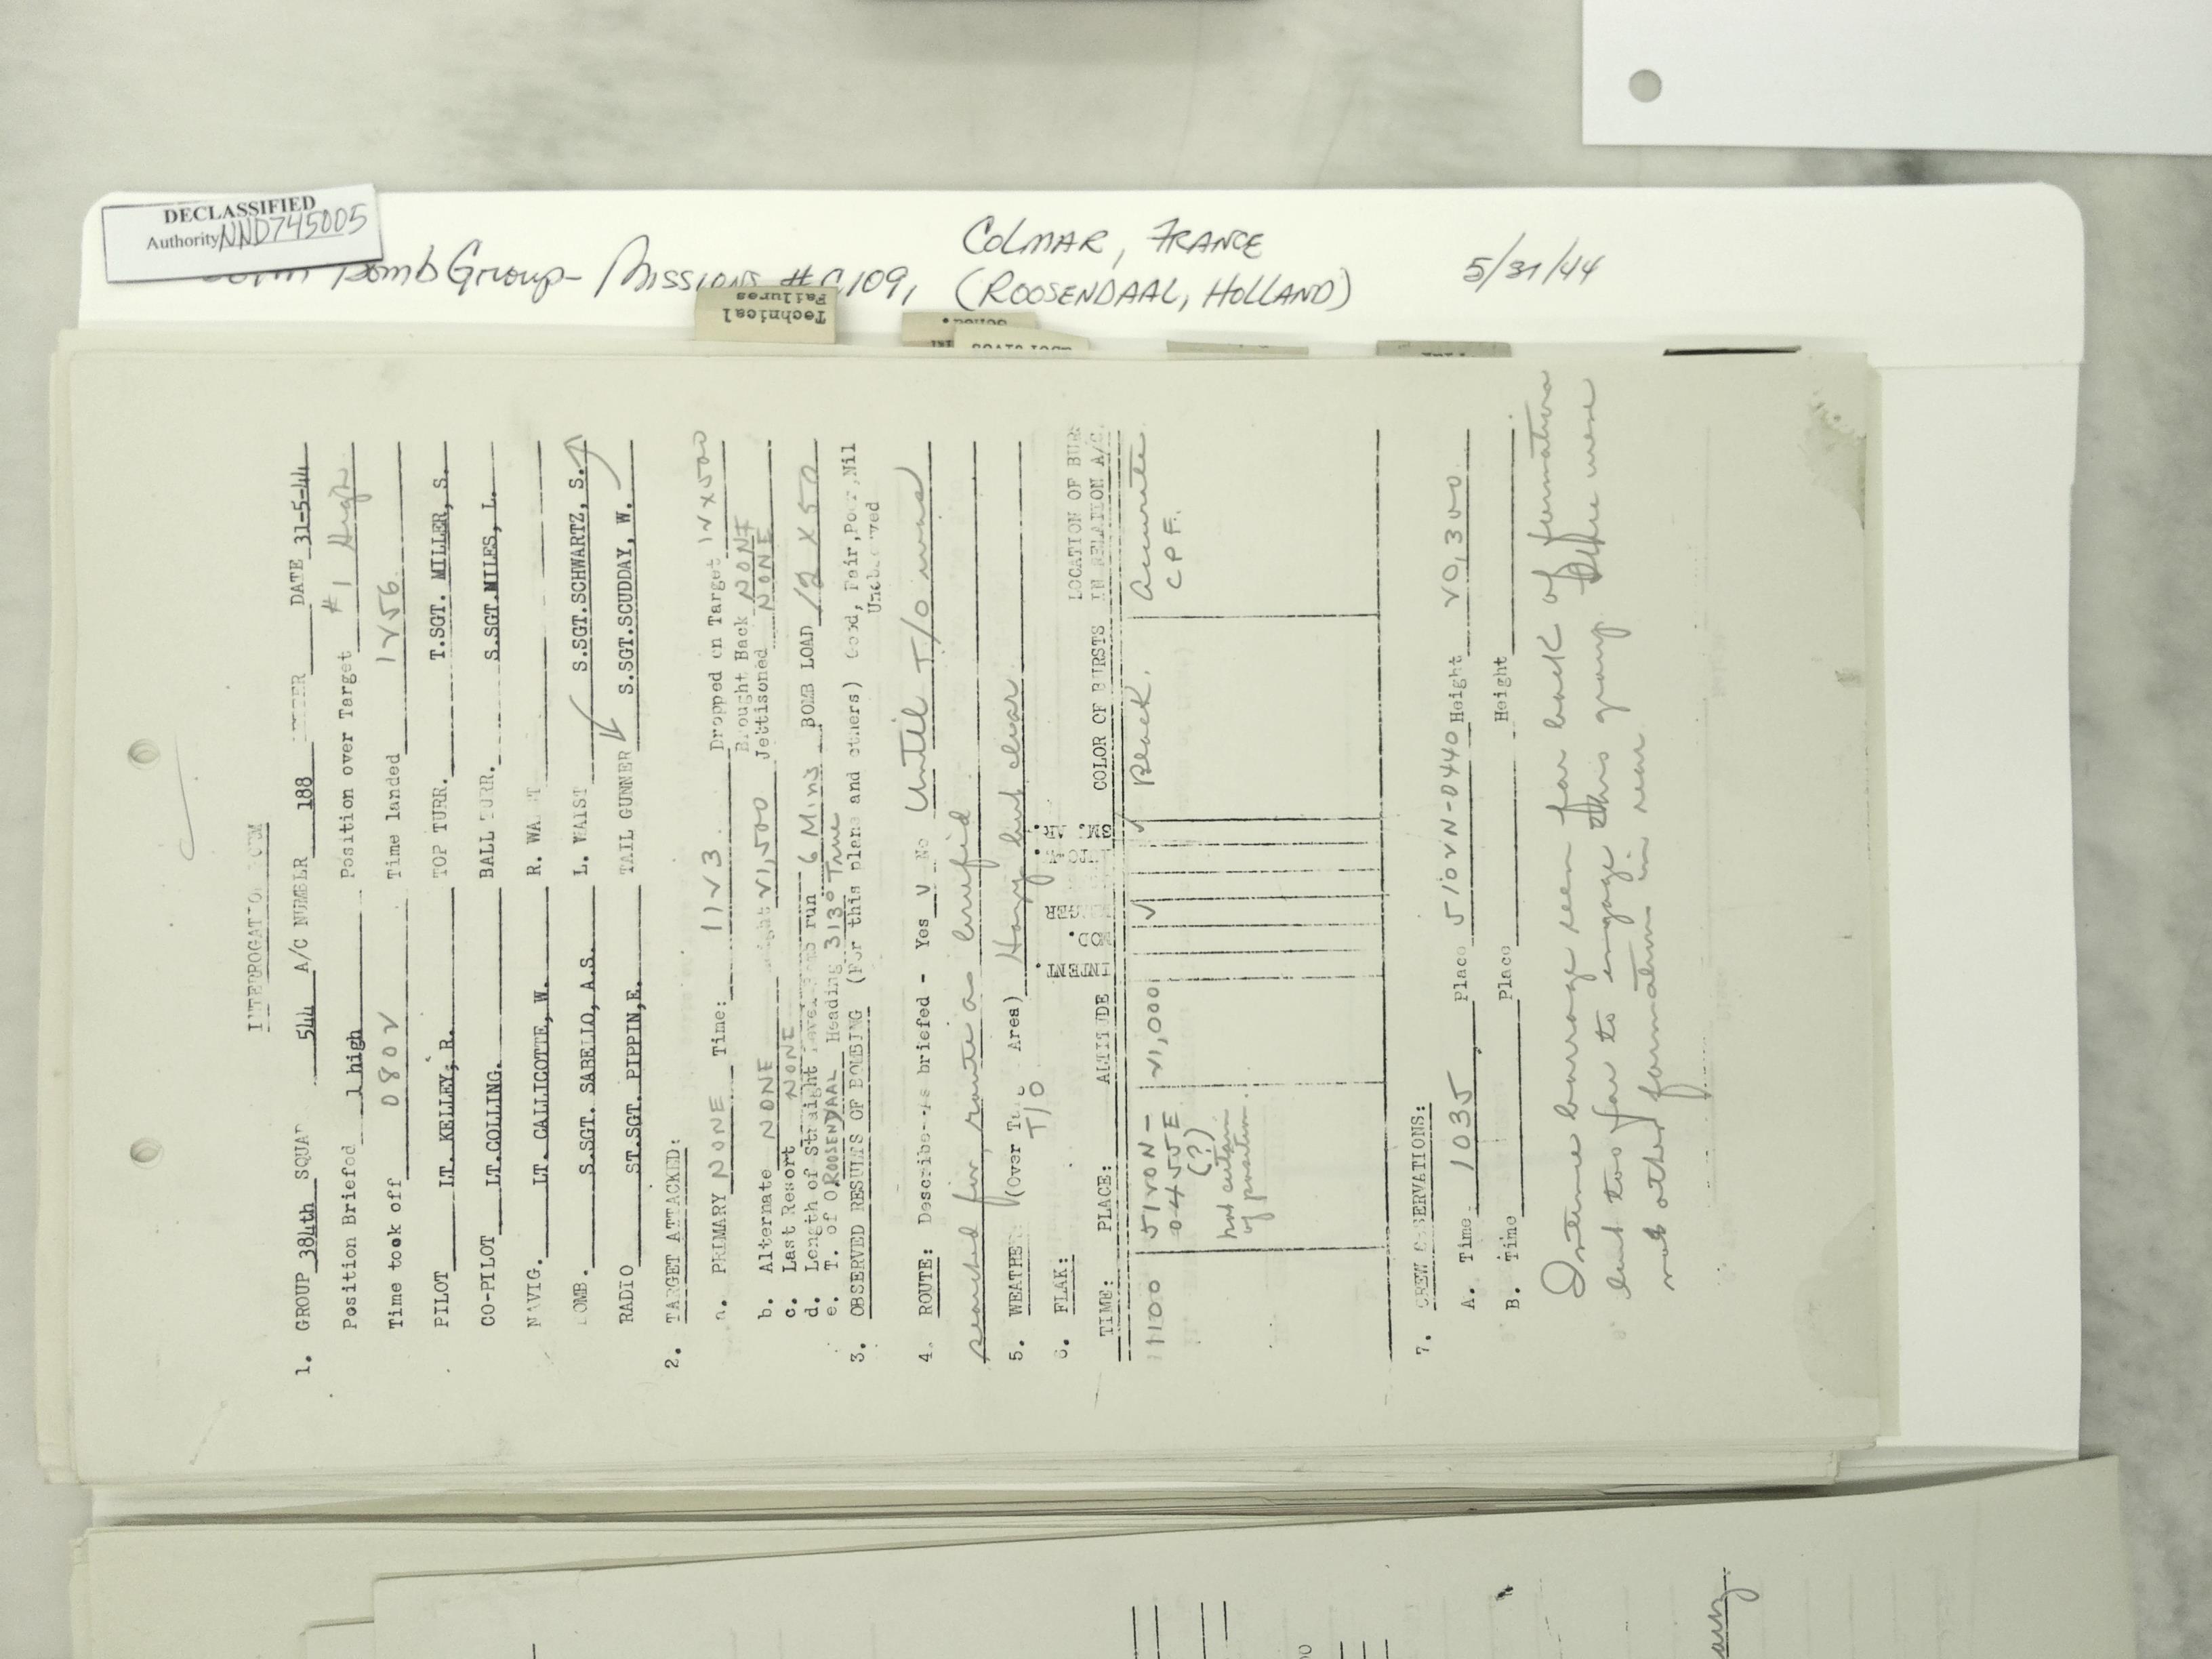 DECLASSIFIED
Authority NND745005
Bomb Group - Missions #109,
COLMAR, FRANCE
(ROOSENDAAL, HOLLAND)
5/31/44
Technical
Failures
INTERROGATION FORM
1. GROUP 384th SQUAD 544 A/C NUMBER 188 LETTER DATE 31-5-44
Position Briefed 1 high Position over Target #1 High
Time took off 0802 Time landed 1256
PILOT LT. KELLEY, R. TOP TURR. T.SGT. MILLER, S.
CO-PILOT LT.COLLING. BALL TURR. S.SGT.MILES, L.
NAVIG. LT. CALLICOTTE, W. R. WAIST
BOMB. S.SGT. SABELLO, A.S. L. WAIST S.SGT.SCHWARTZ, S.
RADIO ST.SGT. PIPPIN,E. TAIL GUNNER S.SGT.SCUDDAY, W.
2. TARGET ATTACKED:
a. PRIMARY NONE Time: 1123 Dropped on Target 12 x 500
Brought Back NONE
b. Alternate NONE Height 21,500 Jettisoned NONE
c. Last Resort NONE
d. Length of Straight Level Bomb run 6 Mins BOMB LOAD 12 X 500
e. T. of O. ROOSENDAAL Heading 313° True
3. OBSERVED RESULTS OF BOMBING (For this plane and others) Good, Fair, Poor, Nil
Unobserved
4. ROUTE: Describe-As briefed - Yes V No Until T/O was
searched for, route as briefed
5. WEATHER (Over Tgt. Area) Hazy but clear
T/O
6. FLAK:
LOCATION OF BUR
TIME: PLACE: ALTITUDE INTENT. MOD. MEAGER SM. AR. COLOR OF BURSTS IN RELATION A/C.
1100 5120N - 21,000 V Black. Accurate
0455E CPF.
(?)
not certain
of position.
7. CREW OBSERVATIONS:
A. Time 1035 Place 5102N-0440 Height 20,300
B. Time Place Height
Intense barrage seen far back of formation
but too far to engage this group. There were
not other formations in rear